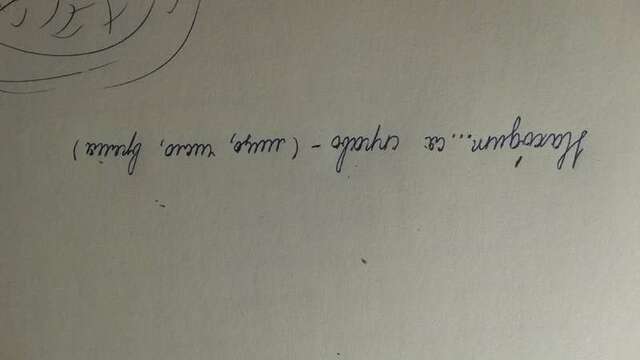 Нахо́дит...ся спра́во - (лицо, число, время)